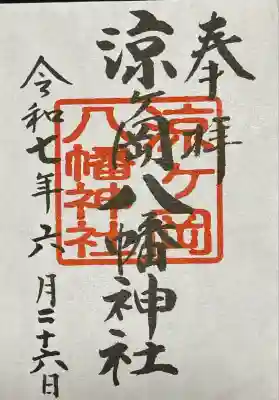 奉拝
涼ヶ岡八幡神社
令和七年六月二十六日
涼ヶ岡
八幡神社